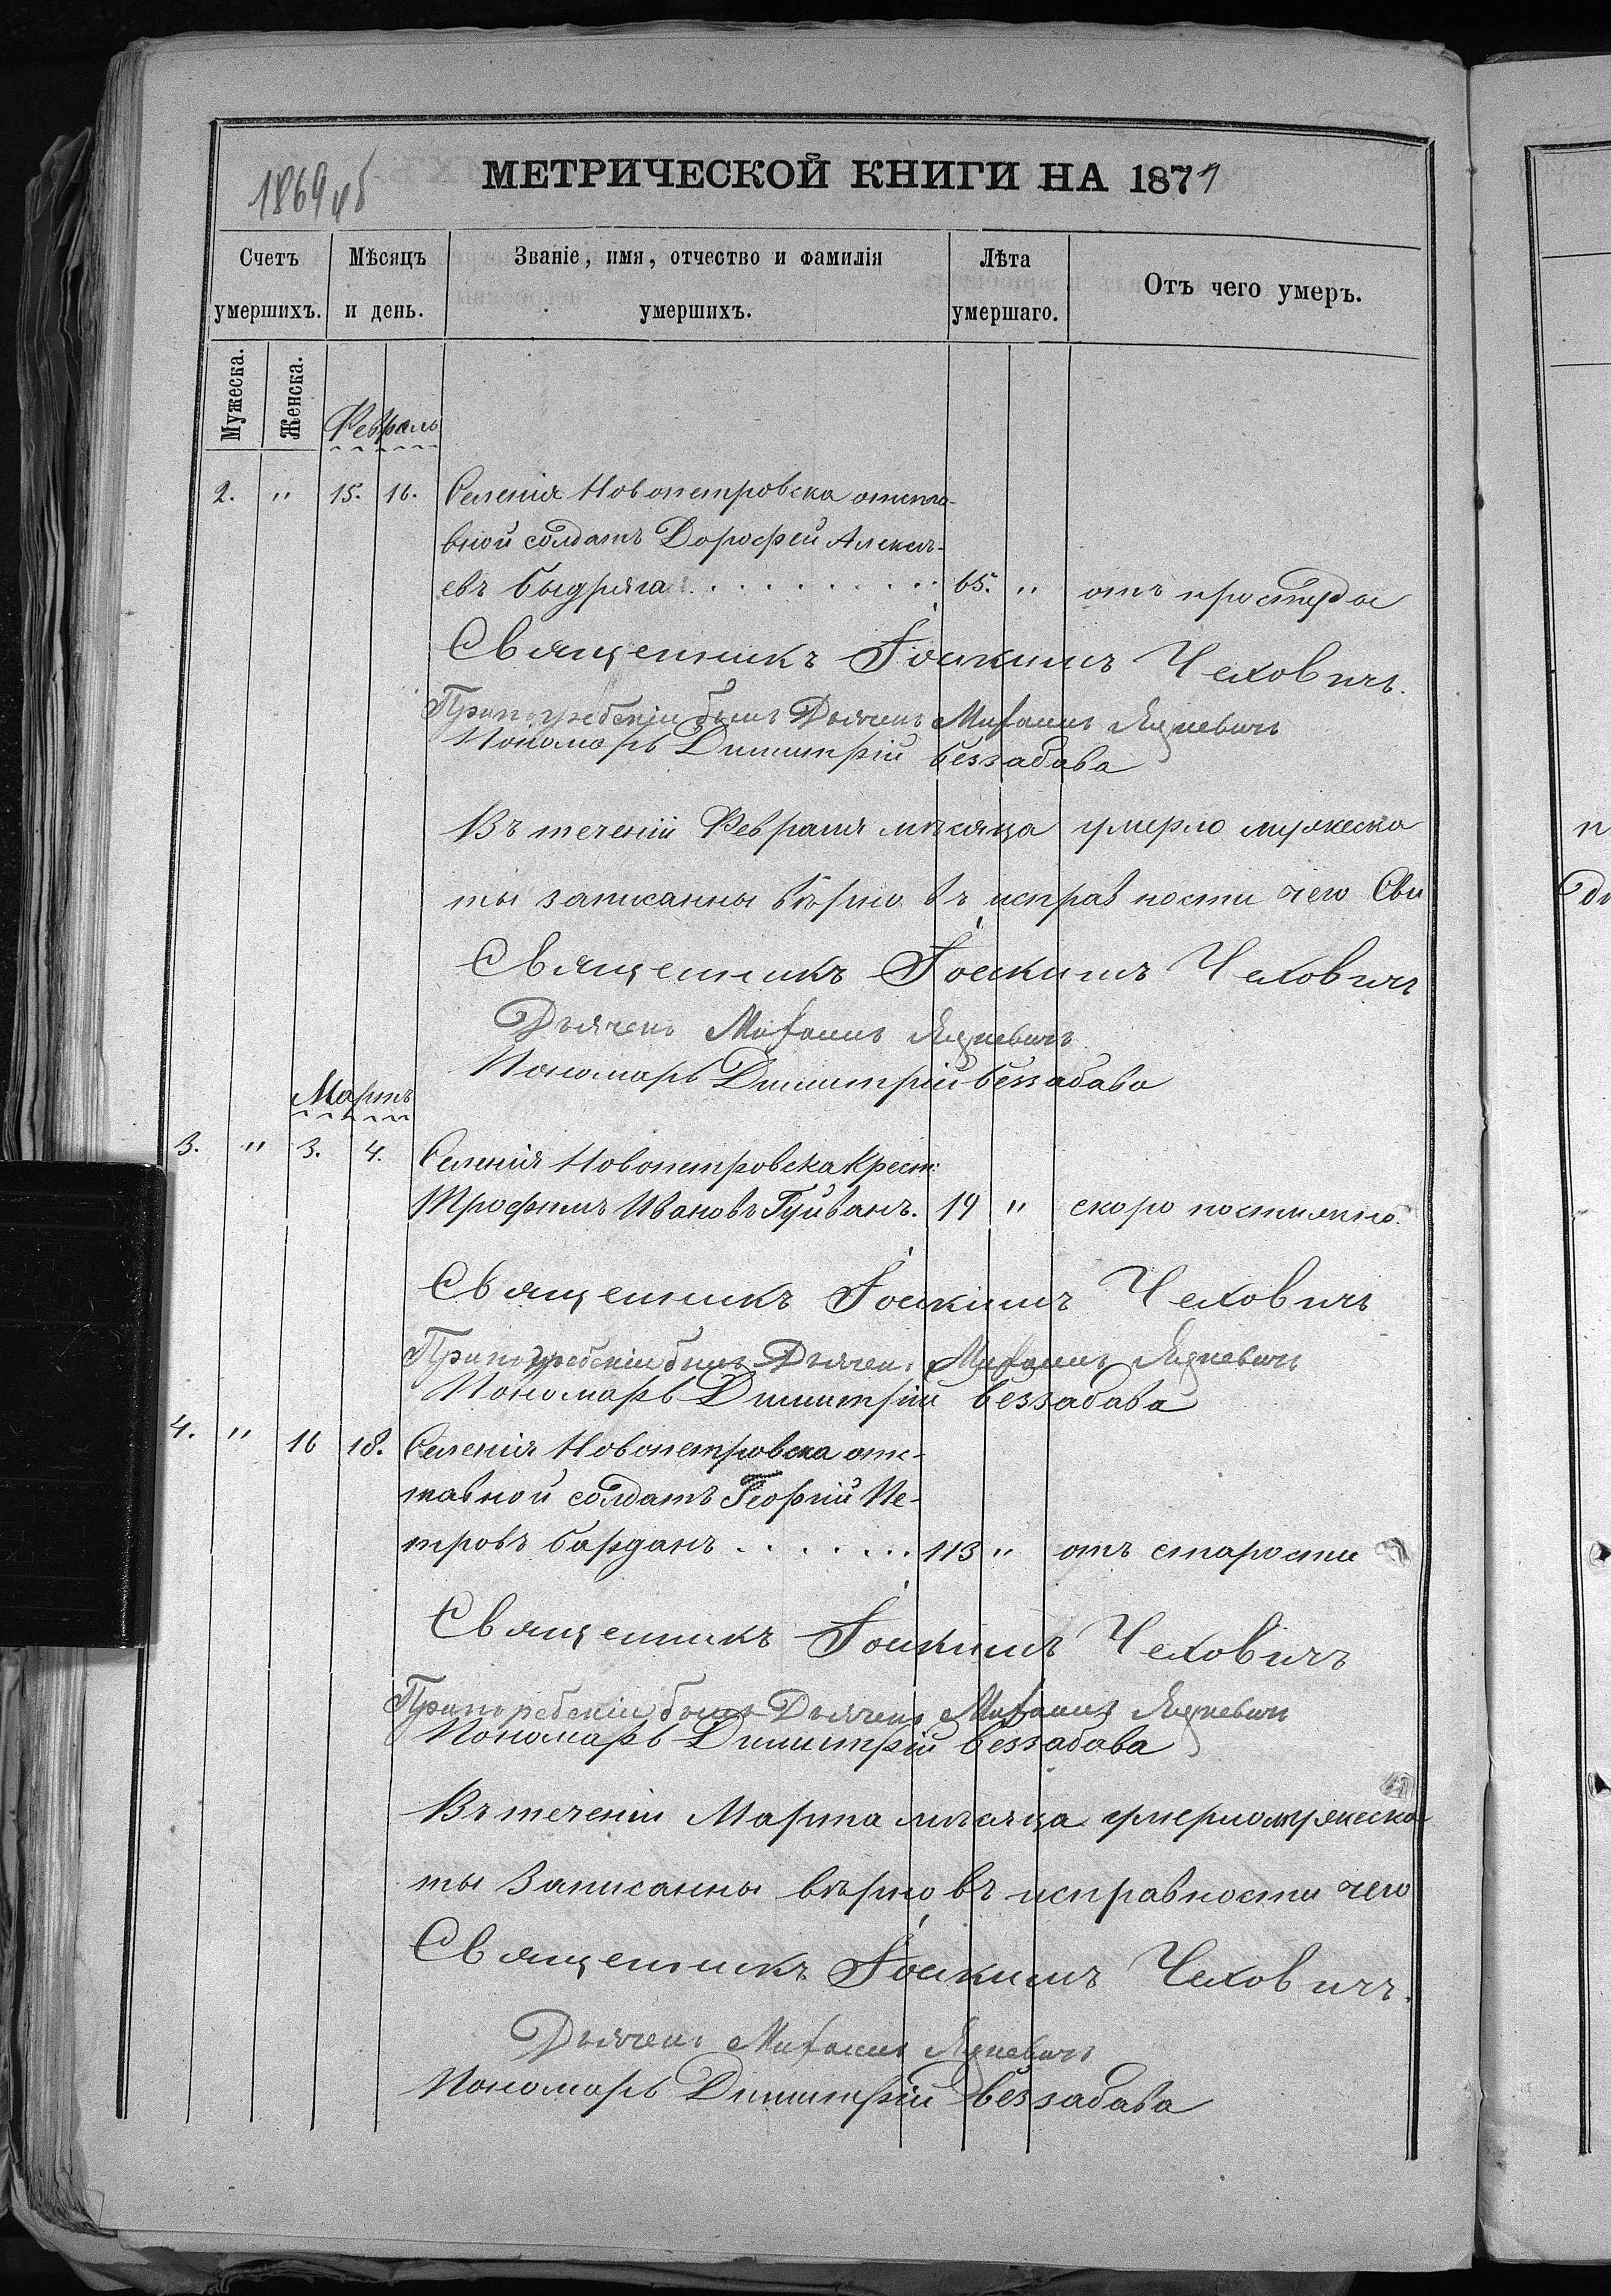 1869 об
МЕТРИЧЕСКОЙ КНИГИ НА 1871
Счетъ умершихъ.
Мѣсяцъ и день.
Званіе, имя, отчество и фамилія умершихъ.
Лѣта умершаго.
Отъ чего умеръ.
Мужеска.
Женска.
Февраль
2. " 15. 16. Селенія Новопетровска отста-
вной солдатъ Дорофей Алексѣ-
евъ Быдряга . . . . . . . . . 65. " отъ простуды
Священникъ Іоакимъ Чеховичъ.
При погребеніи былъ Дьячекъ Михаилъ Яцкевичъ
Пономарь Димитрій Беззабава
Въ теченіи Февраля мѣсяца умерло мужеска
ты записанны вѣрно въ исправности чего Сви
Священникъ Іоакимъ Чеховичъ
Дьячекъ Михаилъ Яцкевичъ
Пономарь Димитрій Беззабава
Мартъ
3. " 3. 4. Селенія Новопетровска Крест:
Трофимъ Ивановъ Гуйванъ. 19 " скоропостижно.
Священникъ Іоакимъ Чеховичъ
При погребеніи былъ Дьячекъ Михаилъ Яцкевичъ
Пономарь Димитрій Беззабава
4. " 16 18. Селенія Новопетровска отс-
тавной солдатъ Георгій Пе-
тровъ Барданъ . . . . . . . 113 " отъ старости
Священникъ Іоакимъ Чеховичъ
При погребеніи былъ Дьячекъ Михаилъ Яцкевичъ
Пономарь Димитрій Беззабава
Въ теченіи Марта мѣсяца умерло мужеска
ты записанны вѣрно въ исправности чего
Священникъ Іоакимъ Чеховичъ.
Дьячекъ Михаилъ Яцкевичъ
Пономарь Димитрій Беззабава